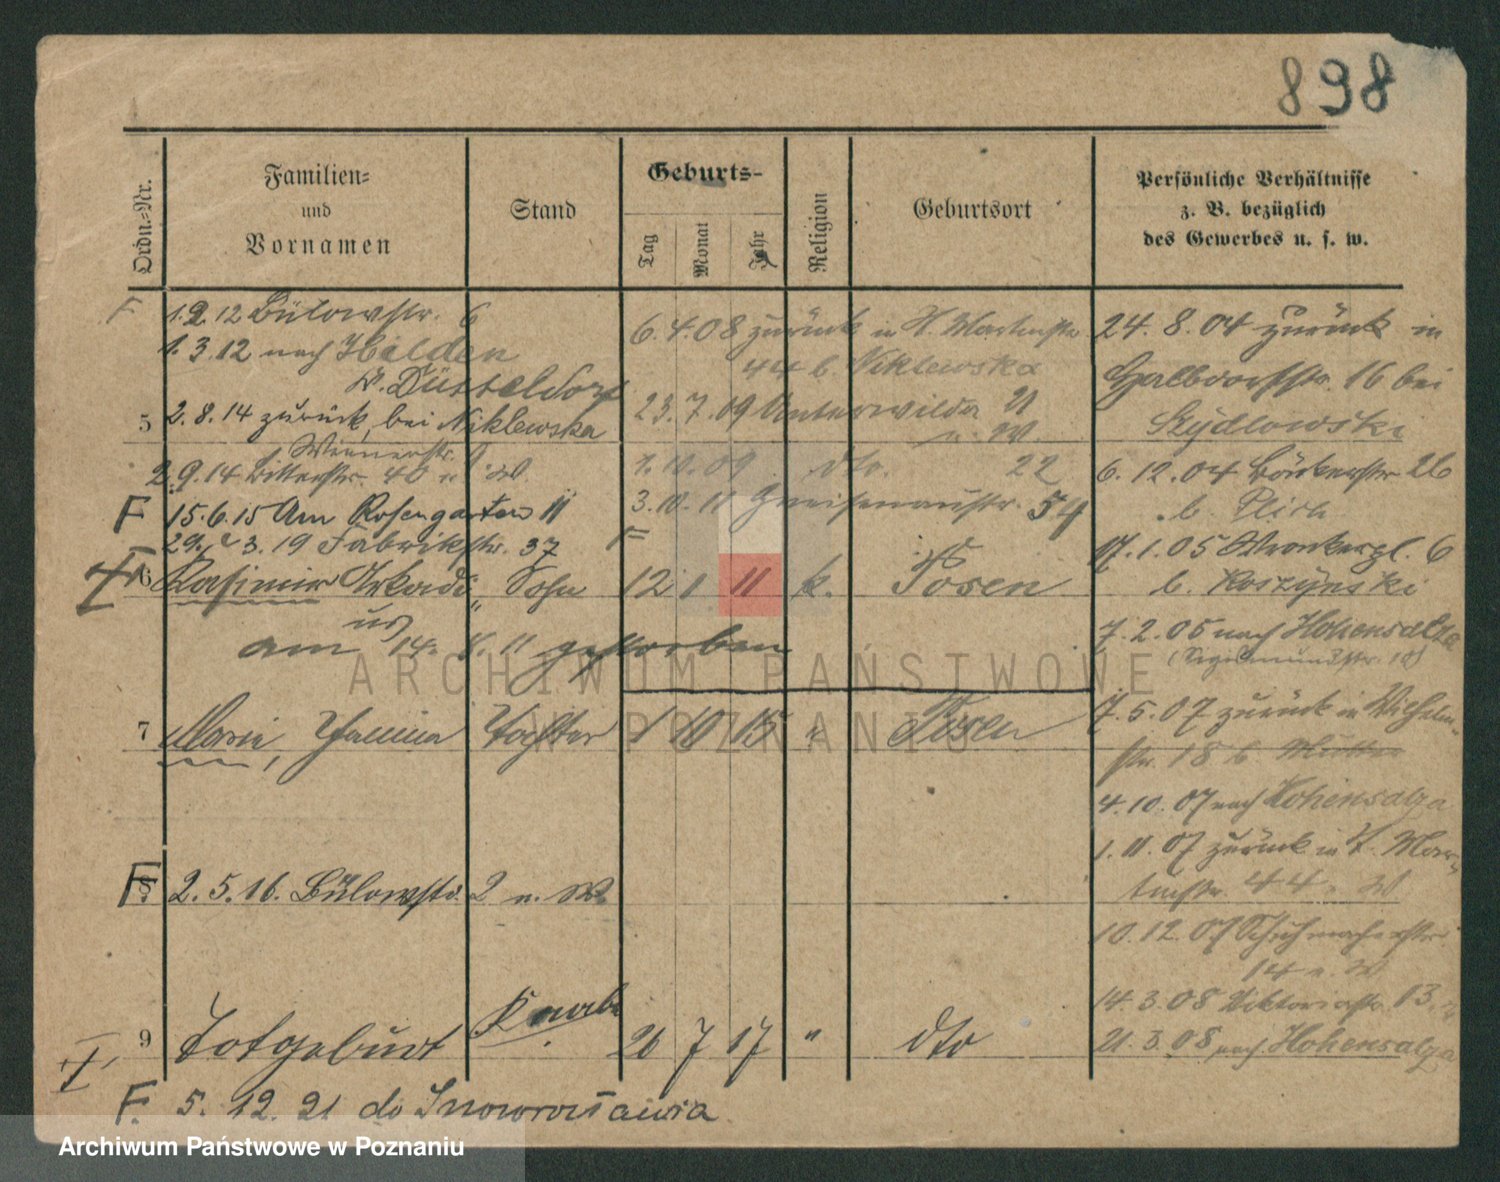 898
Ordn.-Nr.
Familien-
und
Vornamen
Stand
Geburts-
Tag
Monat
Jahr
Religion
Geburtsort
Persönliche Verhältnisse
z. B. bezüglich
des Gewerbes u. s. w.
F
1.2.12 Bülowstr. 6
1.3.12 nach Hilden
b. Düsseldorf
5
2.8.14 zurück, bei Niklewska
2.9.14 Ritterstr. 40
F
15.6.15 Am Rosengarten 11
3.19 Fabrikstr. 37
6.4.08 zurück in St. Martinstr.
44 b. Niklewska
23.7.09 Unterwilda 21
1.10.09 dto. 22
3.10.11 Gneisenaustr. 54
F
6
Kasimir Arkadi
us
Sohn
12 1 11 k. Posen
am 14. 11 gestorben
7
Maria, Janina
Tochter
1 10 15 " Posen
F
8
2.5.16. Bülowstr. 2 n. W.
9
Totgeburt
Knabe
26 7 17 " dto
F. 5. 12. 21 do Inowrocławia
24. 8. 04 zurück in
Halbdorfstr. 16 bei
Szydlowski
6. 12. 04 Bäckerstr. 26
b.
17. 1. 05 Wronkerpl. 6
b. Koszynski
7. 2. 05 nach Hohensalza
(Sigismundstr. 18)
7. 5. 07 zurück in Wilhelm-
str. 18 b. Mutter
4. 10. 07 nach Hohensalza
1. 11. 07 zurück in St. Mar-
tinstr. 44 n. W
10. 12. 07 Schuhmacherstr.
14 n. W
14. 3. 08 Viktoriastr. 13.
21. 3. 08 nach Hohensalza
ARCHIWUM PAŃSTWOWE
W POZNANIU
Archiwum Państwowe w Poznaniu